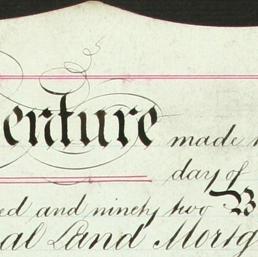 enture made
day of
ed and ninety two B
al Land Mortg